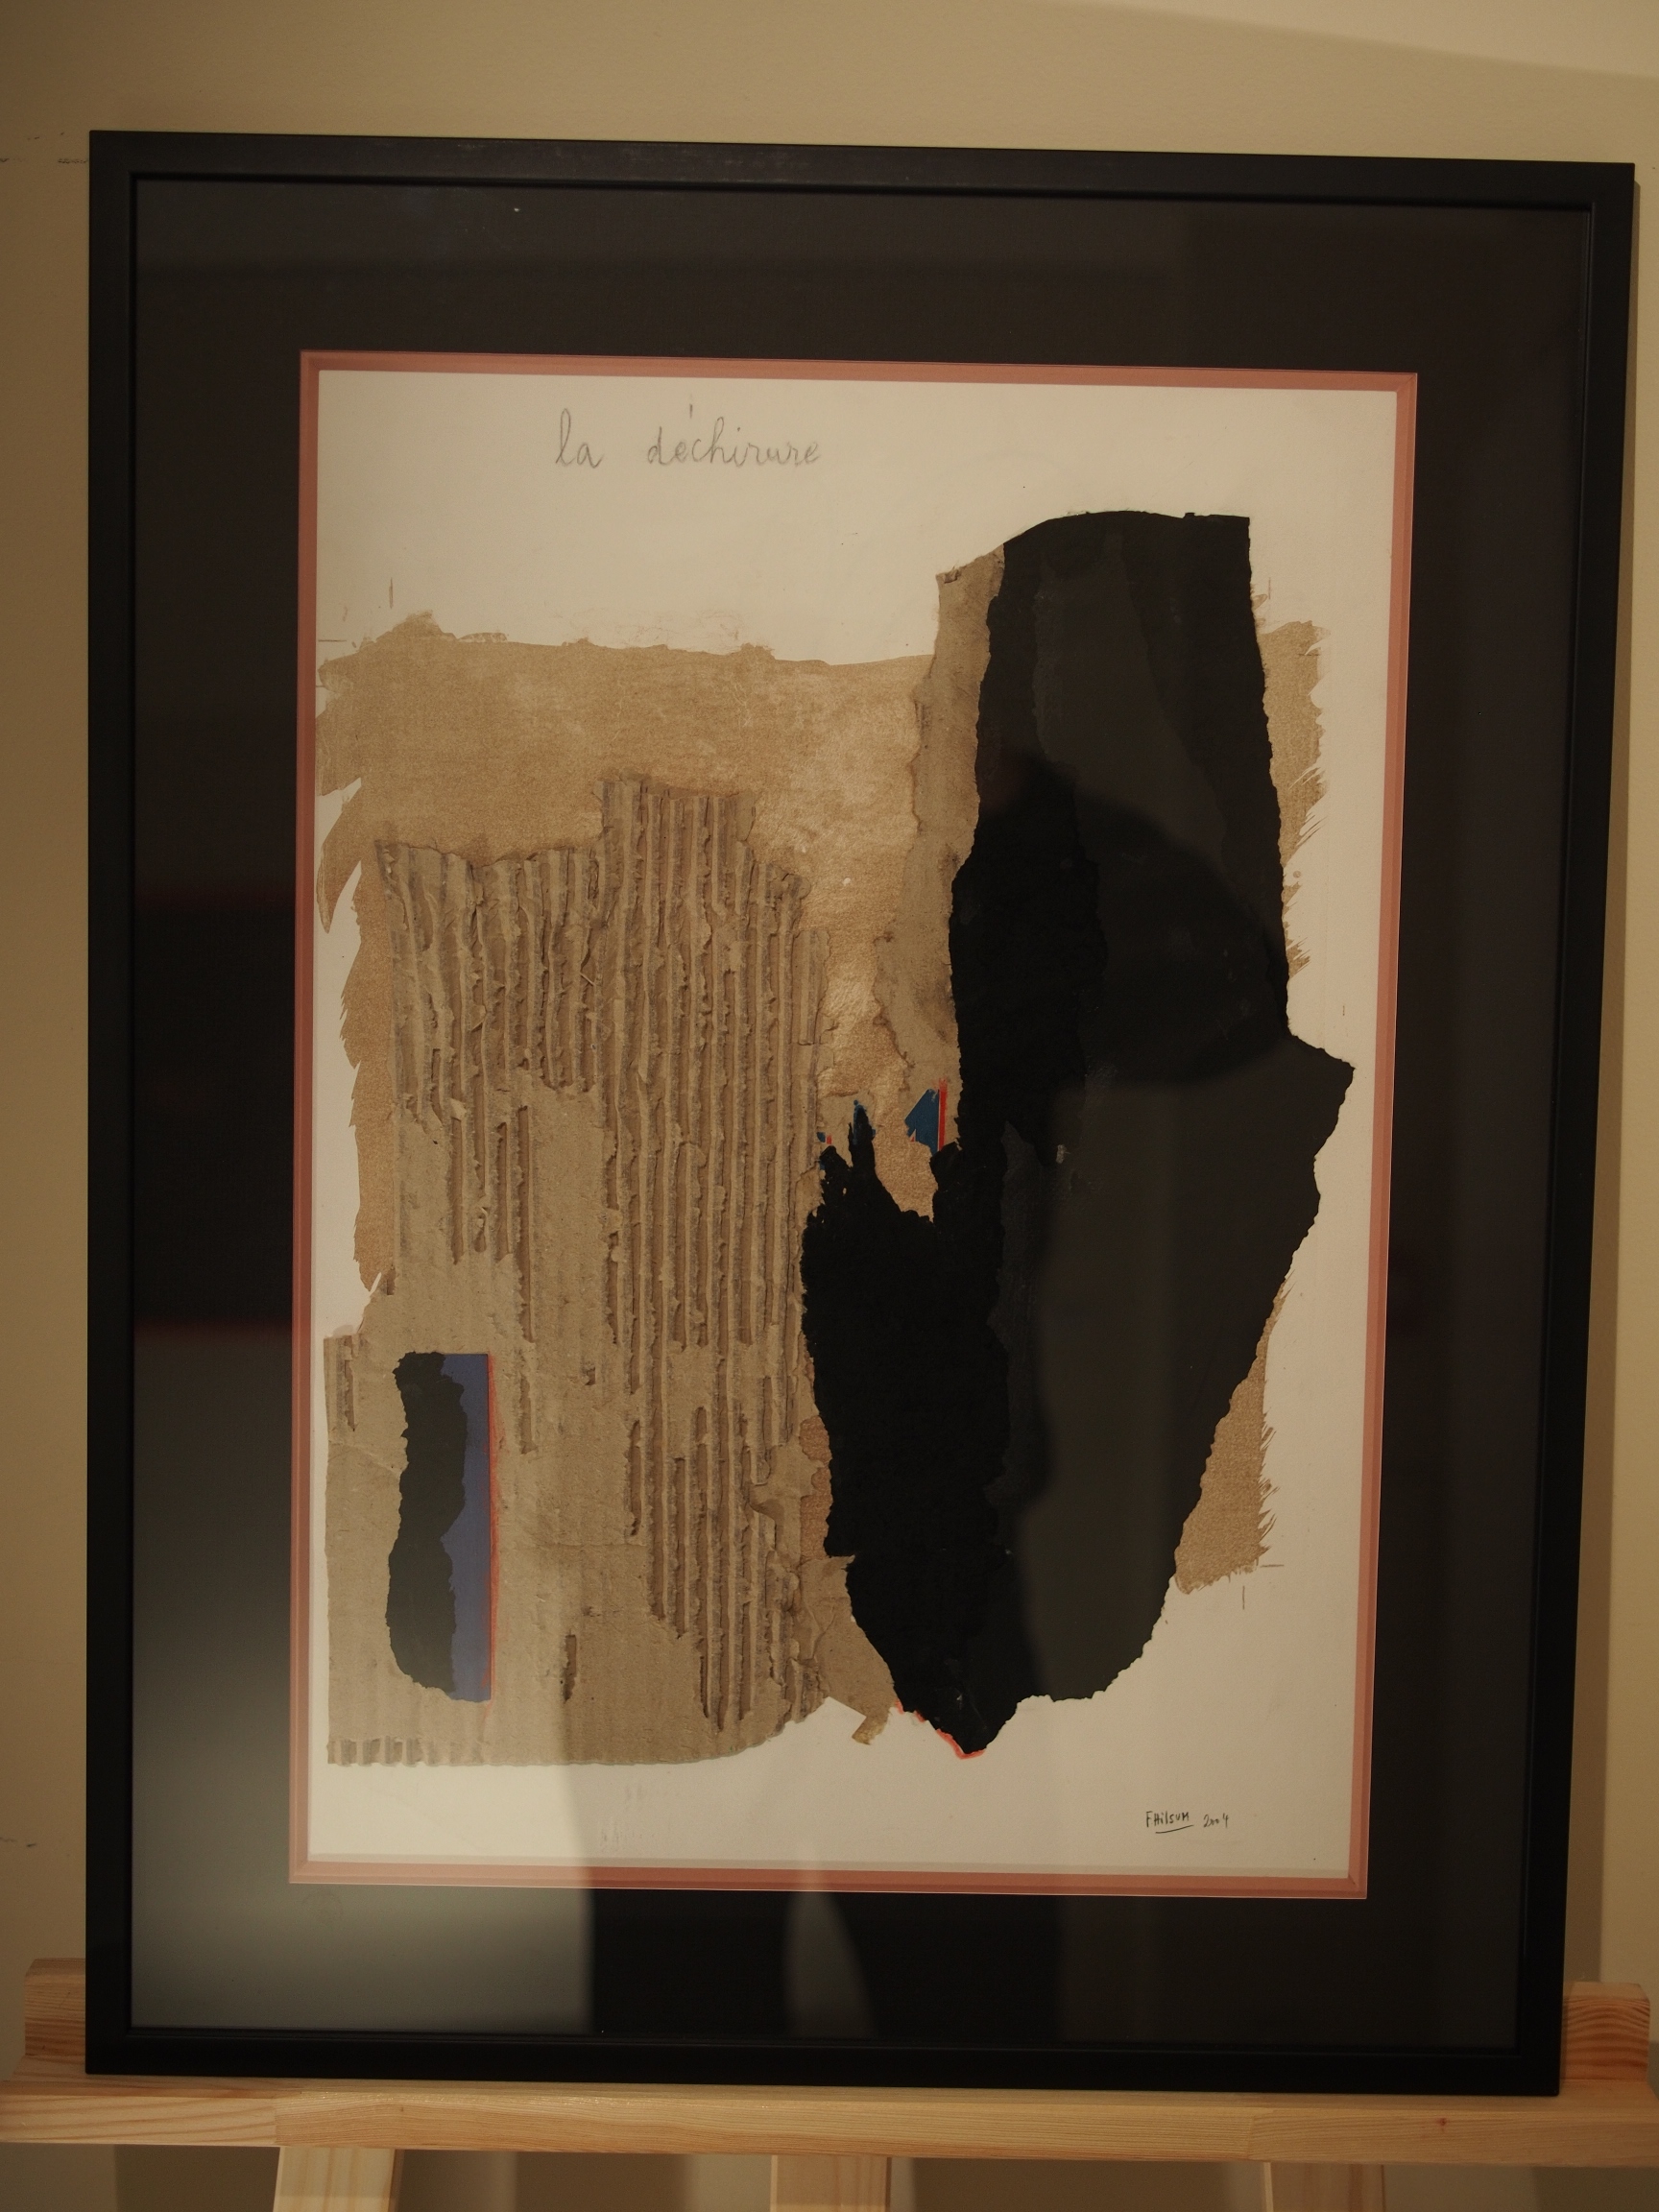 la déchirure
F Hilsum 2004